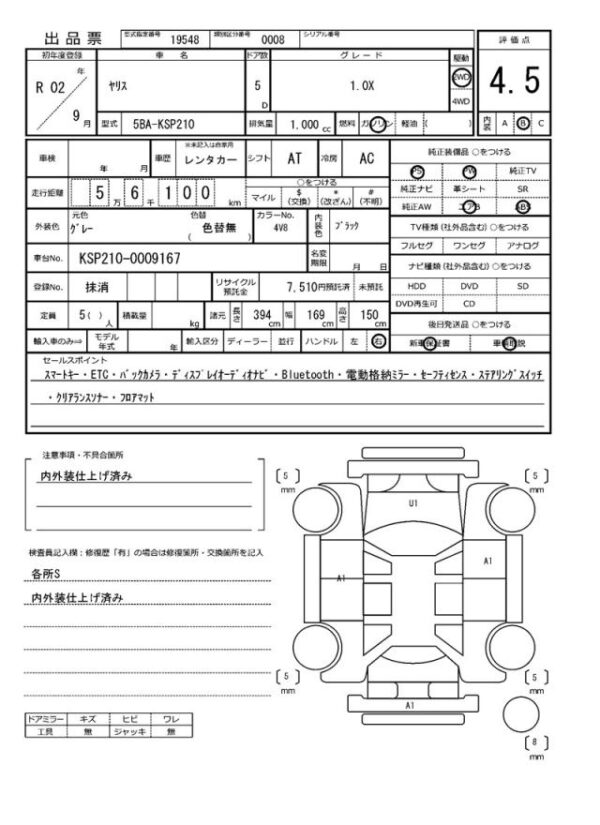 出品票 型式指定番号 19548 類別区分番号 0008 シリアル番号
評価点
初年度登録 車名 ドア数 グレード 駆動
R 02 年 9 月 ヤリス 5 D 1.0X 2WD 4WD
4.5
型式 5BA-KSP210 排気量 1,000 cc 燃料 ガソリン 軽油 ( )
内装 A B C
車検 年 月 車歴 ※未記入は自家用 レンタカー シフト AT 冷房 AC
純正装備品 ○をつける
PS PW 純正TV
純正ナビ 革シート SR
純正AW エアB ABS
走行距離 5万 6千 1 0 0 km
○をつける
マイル $(交換) *(改ざん) #(不明)
外装色 元色 グレー 色替 ( 色替無 ) カラーNo. 4V8 内装色 ブラック
TV種類(社外品含む) ○をつける
フルセグ ワンセグ アナログ
車台No. KSP210-0009167 名変期限 月 日
ナビ種類(社外品含む) ○をつける
HDD DVD SD
DVD再生可 CD
登録No. 抹消 リサイクル預託金 7,510円預託済 未預託
定員 5( )人 積載量 kg 諸元 長さ 394 cm 幅 169 cm 高さ 150 cm
後日発送品 ○をつける
新車保証書 車輌取説
輸入車のみ⇒ モデル年式 年 輸入区分 ディーラー 並行 ハンドル 左 右
セールスポイント
スマートキー・ETC・バックカメラ・ディスプレイオーディオナビ・Bluetooth・電動格納ミラー・セーフティセンス・ステアリングスイッチ
・クリアランスソナー・フロアマット
注意事項・不具合箇所
内外装仕上げ済み
検査員記入欄：修復歴「有」の場合は修復箇所・交換箇所を記入
各所S
内外装仕上げ済み
ドアミラー キズ ヒビ ワレ
工具 無 ジャッキ 無
5 mm
5 mm
U1
A1
A1
5 mm
5 mm
A1
8 mm